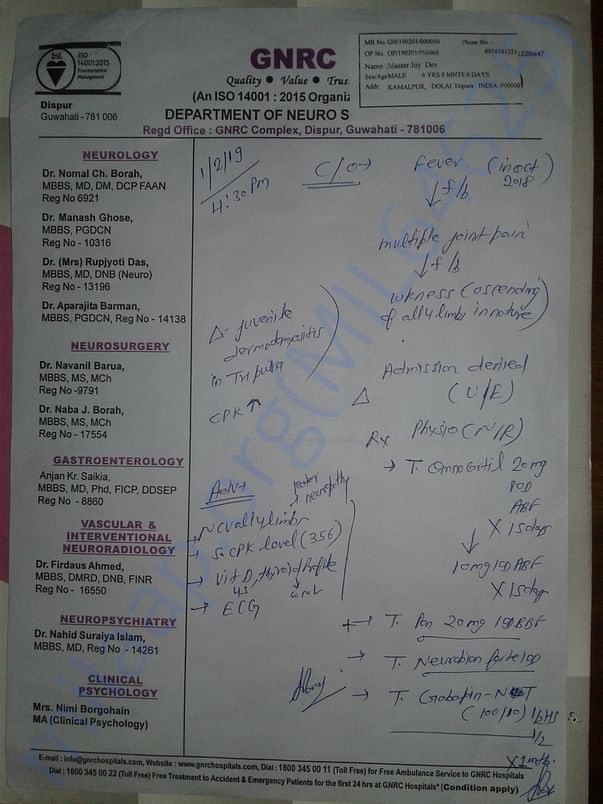 bsi.
ISO
14001:2015
Environmental
Management
GNRC
Quality ● Value ● Trus
(An ISO 14001 : 2015 Organiz
DEPARTMENT OF NEURO S
Regd Office : GNRC Complex, Dispur, Guwahati - 781006
Dispur
Guwahati - 781 006
MR No GH/190201/000050 Phone No. -
OP No. OP/190201/000066 8974181221 LC00447
Name : Master Joy Dev
Sex/Age MALE 6 YRS 0 MNTS 0 DAYS
Addr: KAMALPUR, DOLAI Tripura INDIA 000001
NEUROLOGY
Dr. Nomal Ch. Borah,
MBBS, MD, DM, DCP FAAN
Reg No 6921
Dr. Manash Ghose,
MBBS, PGDCN
Reg No - 10316
Dr. (Mrs) Rupjyoti Das,
MBBS, MD, DNB (Neuro)
Reg No - 13196
Dr. Aparajita Barman,
MBBS, PGDCN, Reg No - 14138
NEUROSURGERY
Dr. Navanil Barua,
MBBS, MS, MCh
Reg No -9791
Dr. Naba J. Borah,
MBBS, MS, MCh
Reg No - 17554
GASTROENTEROLOGY
Anjan Kr. Saikia,
MBBS, MD, Phd, FICP, DDSEP
Reg No - 8860
VASCULAR &
INTERVENTIONAL
NEURORADIOLOGY
Dr. Firdaus Ahmed,
MBBS, DMRD, DNB, FINR
Reg No - 16550
NEUROPSYCHIATRY
Dr. Nahid Suraiya Islam,
MBBS, MD, Reg No - 14261
CLINICAL
PSYCHOLOGY
Mrs. Nimi Borgohain
MA (Clinical Psychology)
1/2/19
4:30 Pm
C/O→ Fever (in oct
2018)
↓ f/b
multiple joint pain
↓ f/b
wkness (ascending
of all 4 limb in nature)
Δ- juvenile
dermatomyositis
in Tripura
CPK ↑
Admission denied
Δ (U/E)
Rx Physio (N/R)
→ T. Omnacortil 20mg
1OD
ABF
X 15days
↓
10mg 1OD ABF
X 15days
Adv→
motor
neuropathy
→ NCV all 4 limbs
→ S. CPK level (356)
→ Vit D, thyroid profile
45 WNL
→ ECG
→ T. Pan 20mg 1OD BBF
→ T. Neurobion forte 1OD
→ T. Gabapin-NT
(100/10) 1/2 HS
1/2
X 1 mth.
milaap.org(MIL64625)
E-mail : info@gnrchospitals.com, Website : www.gnrchospitals.com, Dial : 1800 345 00 11 (Toll Free) for Free Ambulance Service to GNRC Hospitals
Dial : 1800 345 00 22 (Toll Free) Free Treatment to Accident & Emergency Patients for the first 24 hrs at GNRC Hospitals* (Condition apply)